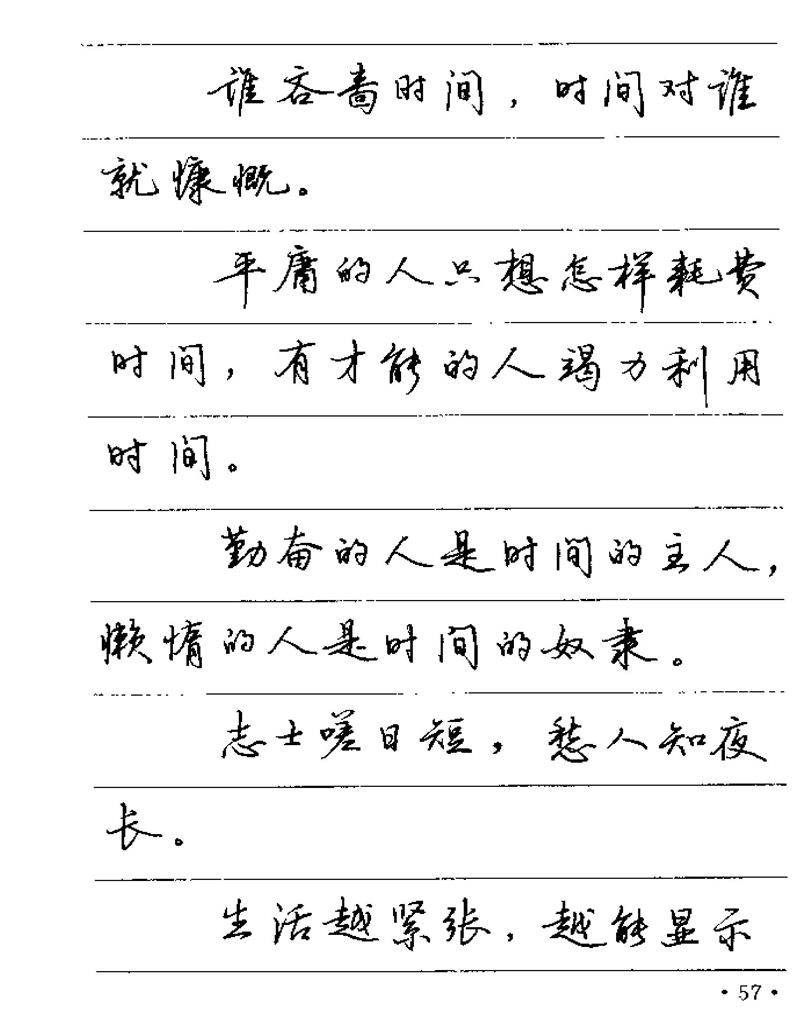 谁吝啬时间，时间对谁
就慷慨。
平庸的人只想怎样耗费
时间，有才能的人竭力利用
时间。
勤奋的人是时间的主人，
懒惰的人是时间的奴隶。
志士嗟日短，愁人知夜
长。
生活越紧张，越能显示
·57·